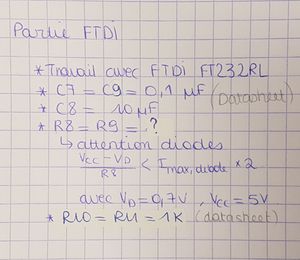 Partie FTDi
* Travail avec FTDi FT232RL
* C7 = C9 = 0,1 µF (Datasheet)
* C8 = 10 µF
* R8 = R9 = ?
↳ attention diodes
(Vcc - VD) / R8 < Imax, diode * 2
avec VD = 0,7V, Vcc = 5V
* R10 = R11 = 1K (datasheet)